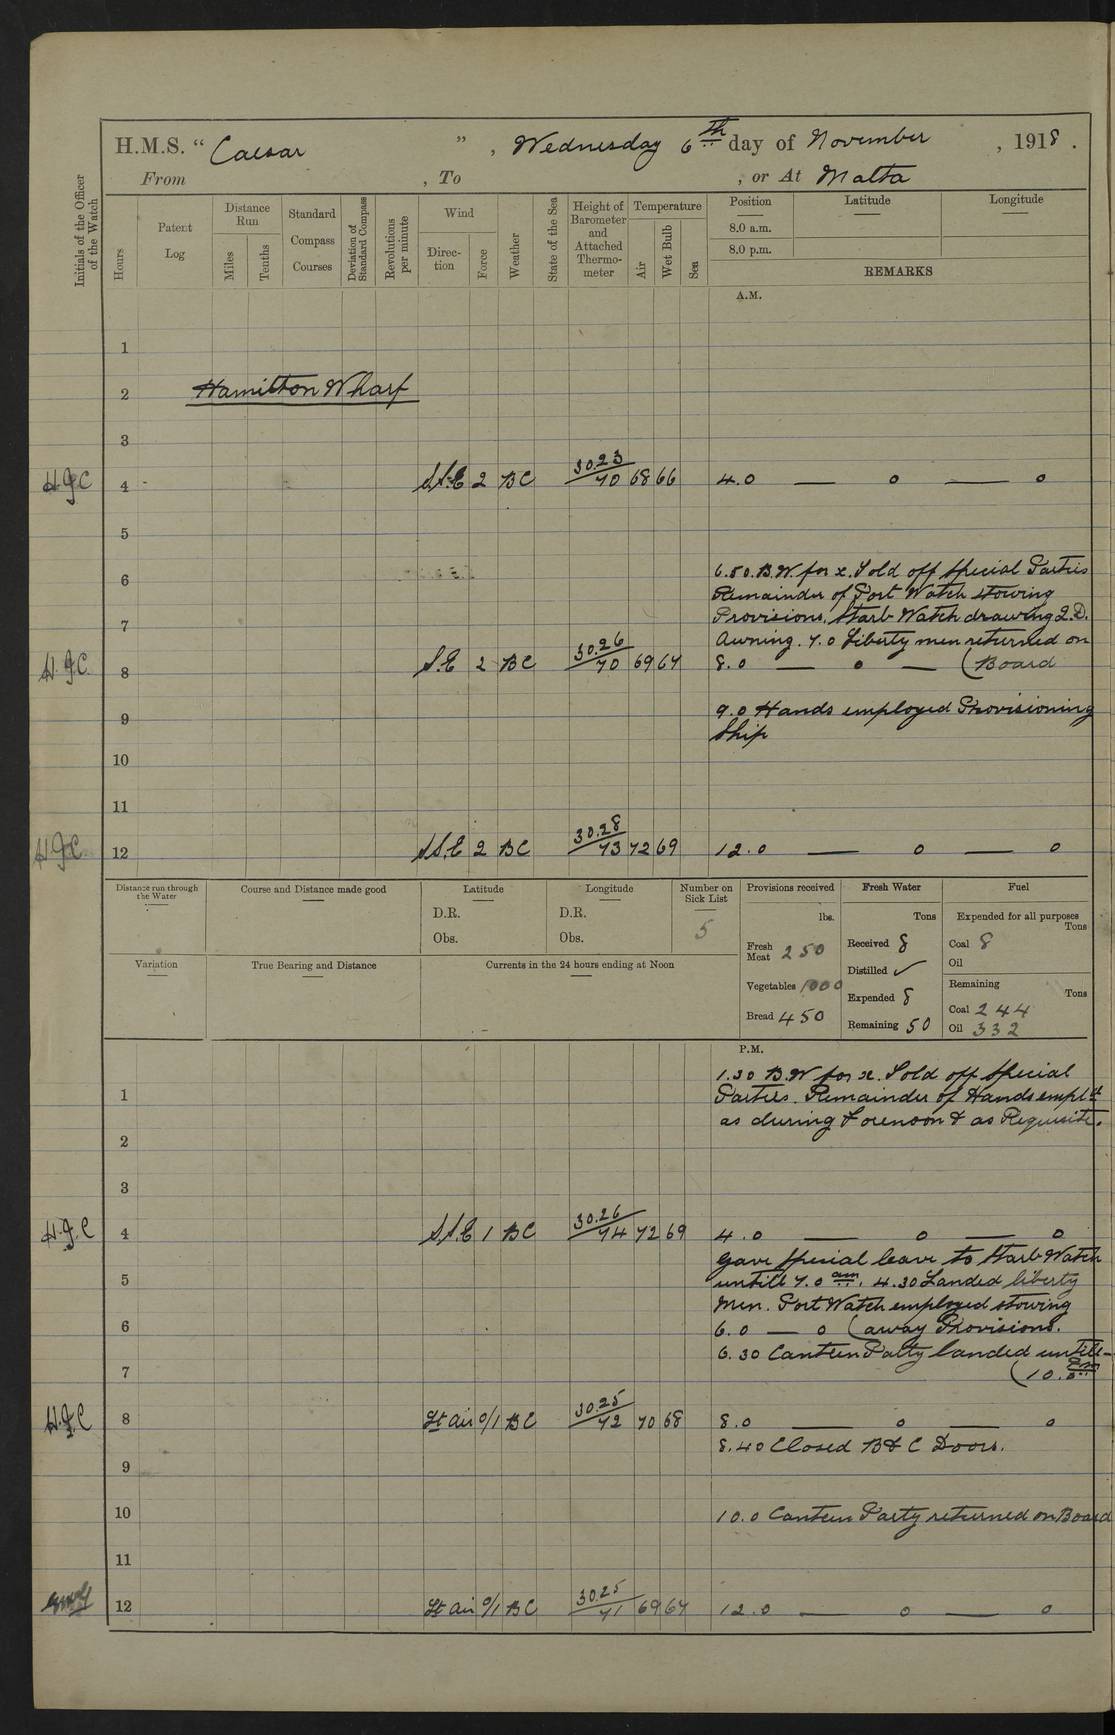 H.M.S. “ Caesar ” , Wednesday 6th day of November , 1918 .
From , To , or At Malta
Initials of the Officer of the Watch
Hours
Patent Log
Distance Run
Miles
Tenths
Standard Compass Courses
Deviation of Standard Compass
Revolutions per minute
Wind
Direction
Force
Weather
State of the Sea
Height of Barometer and Attached Thermometer
Temperature
Air
Wet Bulb
Sea
Position Latitude Longitude
8.0 a.m.
8.0 p.m.
REMARKS
A.M.
1
2 Hamilton Wharf
3
H.J.C 4 S.S.E 2 BC 30.23/70 68 66 4.0 — o — o
5
6 6.50. B.W. for x. Told off Special Parties
Remainder of Port Watch stowing
7 Provisions, Starb Watch drawing Q.D.
Awning. 7.0 Liberty men returned on
H.J.C 8 S.E 2 BC 30.26/70 69 67 8.0 — o — (Board
9 9.0 Hands employed Provisioning
Ship
10
11
H.J.C 12 S.S.E 2 BC 30.28/73 72 69 12.0 — o — o
Distance run through the Water
Course and Distance made good
Latitude
D.R.
Obs.
Longitude
D.R.
Obs.
Number on Sick List
5
Provisions received
lbs.
Fresh Meat 250
Vegetables 1000
Bread 450
Fresh Water
Tons
Received 8
Distilled ✓
Expended 8
Remaining 50
Fuel
Expended for all purposes
Tons
Coal 8
Oil
Remaining
Tons
Coal 244
Oil 332
Variation
True Bearing and Distance
Currents in the 24 hours ending at Noon
P.M.
1.30 B.W for x. Told off Special
1 Parties. Remainder of Hands empld
as during Forenoon & as Requisite.
2
3
H.J.C 4 S.S.E 1 BC 30.26/74 72 69 4.0 — o — o
Gave special leave to Starb Watch
5 untill 7.0 am. 4.30 Landed liberty
Men. Port Watch employed stowing
6 6.0 — o (away Provisions.
6.30 Canteen Party landed untill
7 (10.0 PM
H.J.C 8 Lt air 0/1 BC 30.25/72 70 68 8.0 — o — o
8.40 Closed B & C Doors.
9
10 10.0 Canteen Party returned on Board
11
12 Lt air 0/1 BC 30.25/71 69 67 12.0 — o — o